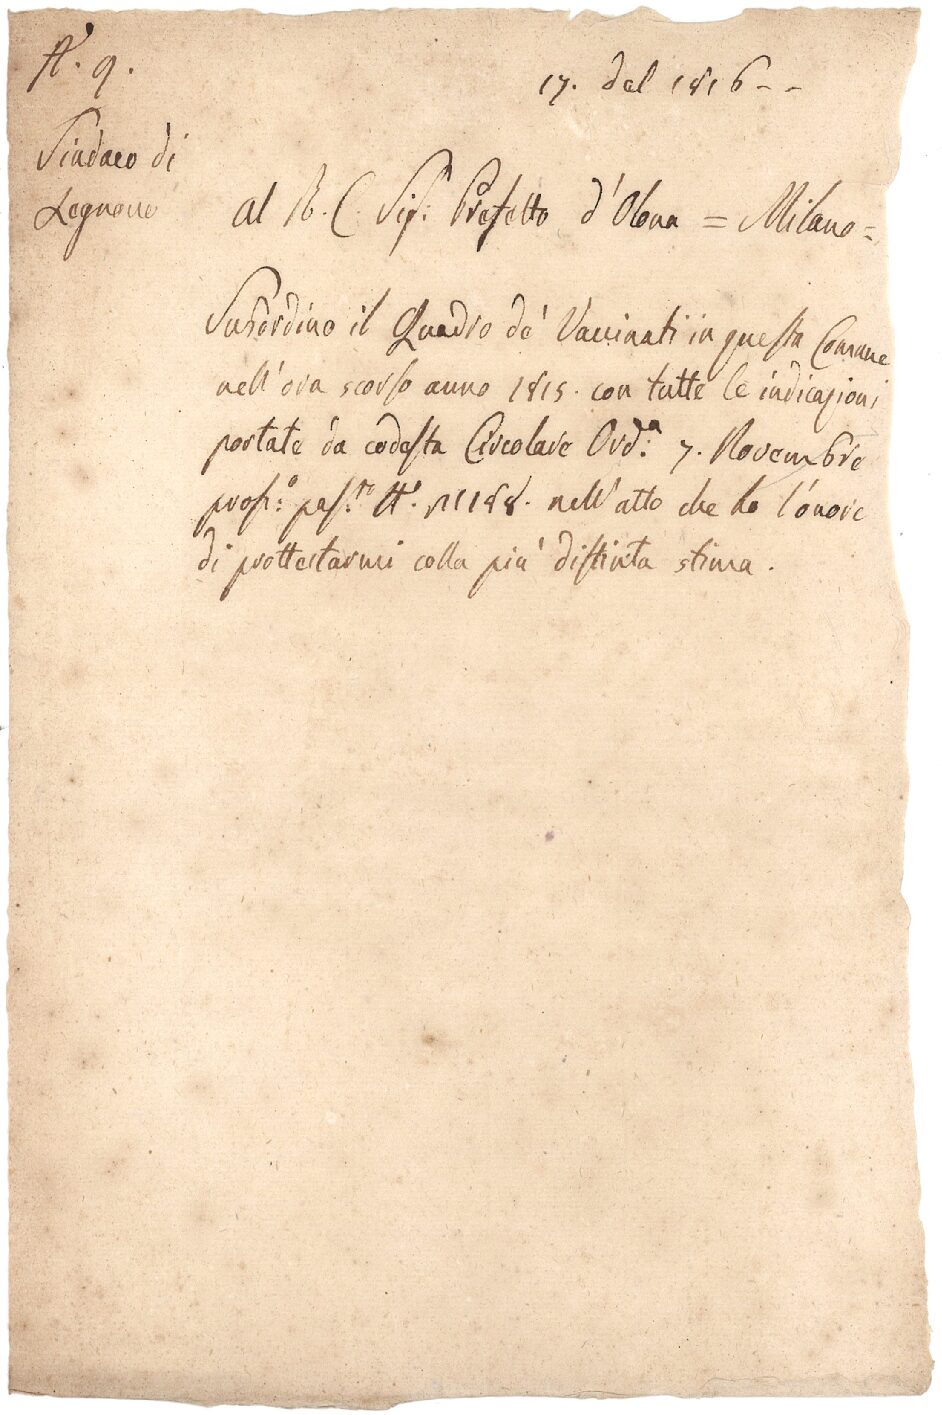 N.° 9.
17. del 1816 - -
Sindaco di
Legnano
al R. C. Sig.: Prefetto d'Olona = Milano =
Subordino il Quadro de' Vaccinati in questa Comune
nell'ora scorso anno 1815. con tutte le indicazioni
portate da codesta Circolare Ord.ª 7. Novembre
pross.° pas.to N.° 21188. nell'atto che ho l'onore
di prottestarmi colla più distinta stima.